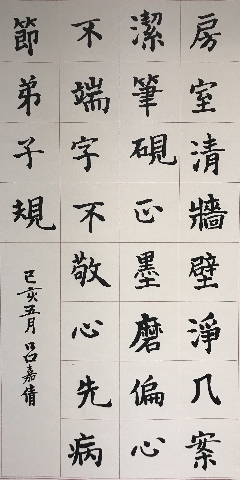 房室清牆壁淨几案
潔筆硯正墨磨偏心
不端字不敬心先病
節弟子規
己亥五月呂嘉倩